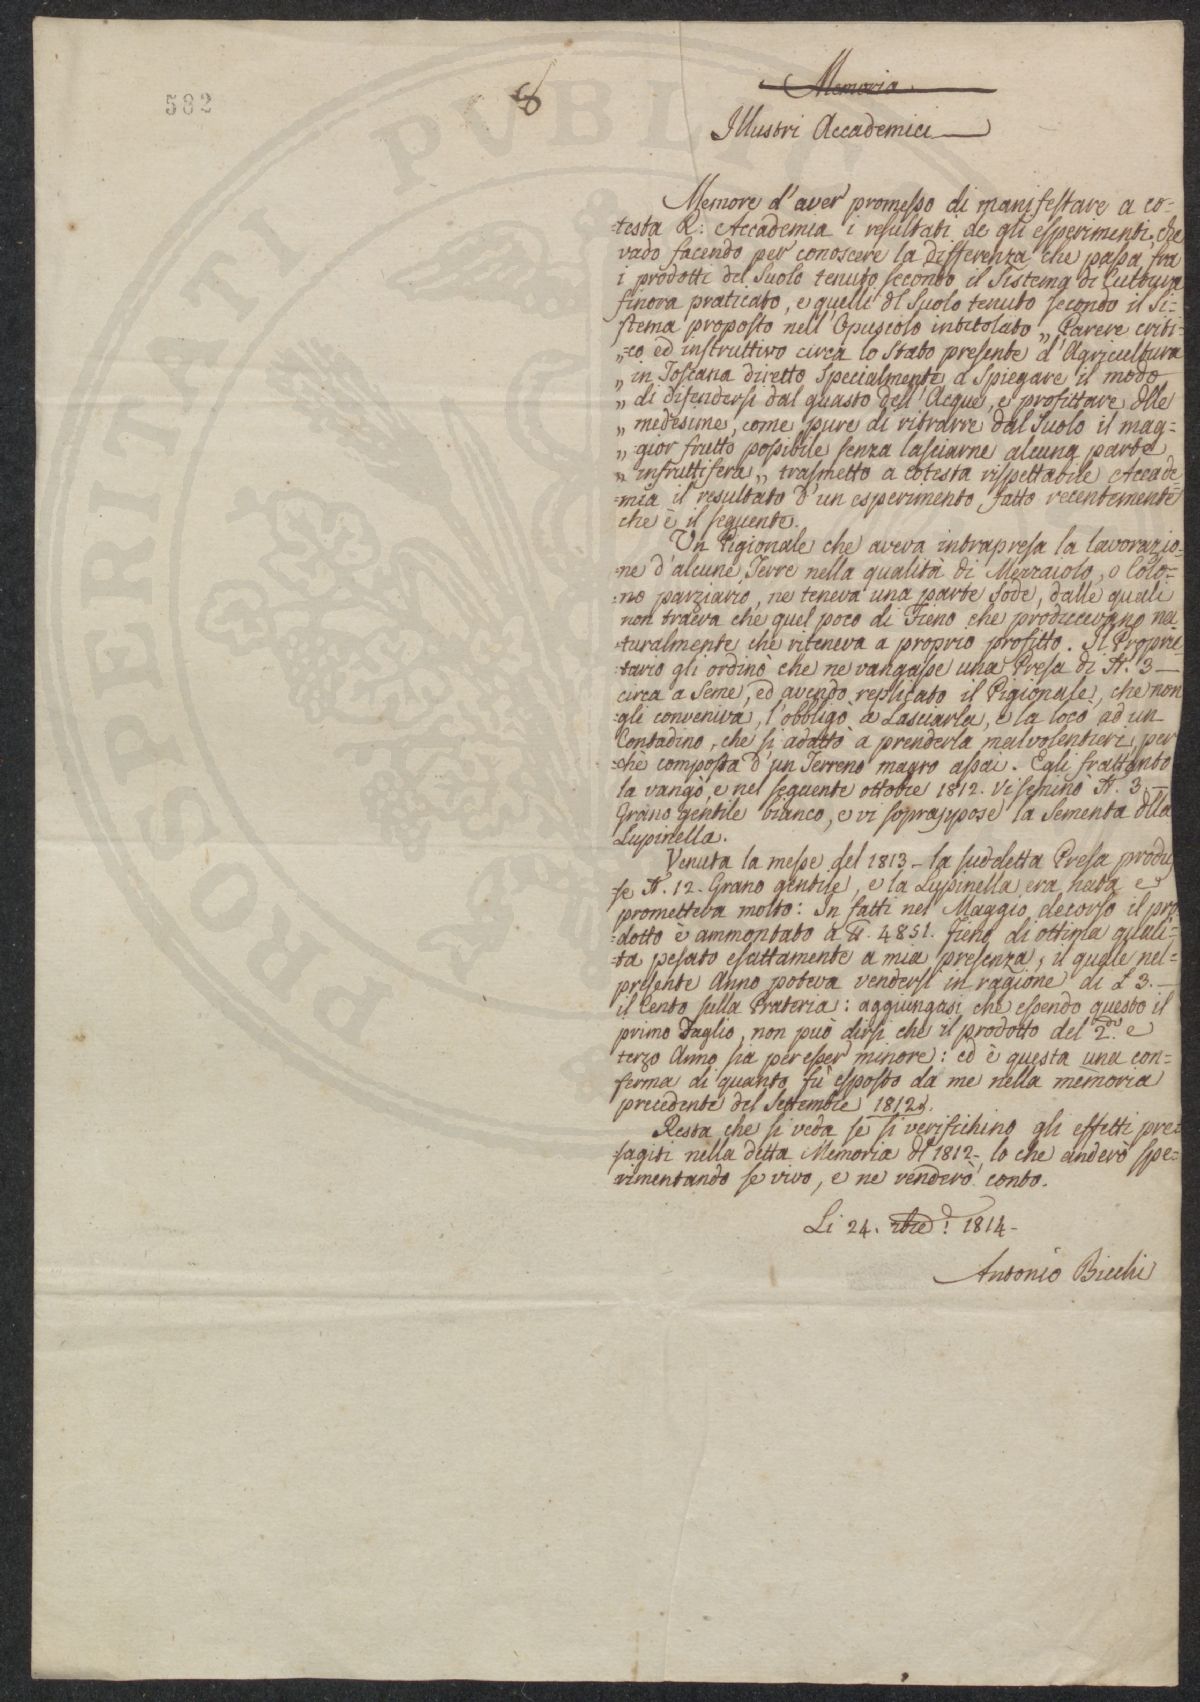 582
8
Memoria
Illustri Accademici
Memore d'aver promesso di manifestare a co-
=testa R: Accademia i resultati de gli esperimenti, che
vado facendo per conoscere la differenza che passa fra
i prodotti del Suolo tenuto secondo il Sistema di Cultura
finora praticato, e quelli dl Suolo tenuto secondo il Si=
stema proposto nell'Opuscolo intitolato „ Parere criti=
„=co ed instruttivo circa lo Stato presente d'Agricultura
„ in Toscana diretto Specialmente a Spiegare il modo
„ di difendersi dal guasto dell'Acque, e profittare dlle
„ medesime, come pure di ritrarre dal Suolo il mag=
„=gior frutto possibile senza lasciarne alcuna parte
„ infruttifera „ trasmetto a cotesta rispettabile Accade=
=mia il resultato d'un esperimento fatto recentemente
che è il seguente.
Un Pigionale che aveva intrapresa la lavorazio=
=ne d'alcune Terre nella qualità di Mezzaiolo, o Colo=
=no parziario, ne teneva una parte Sode, dalle quali
non traeva che quel poco di Fieno che producevano na
=turalmente che riteneva a proprio profitto. Il Proprie=
=tario gli ordinò che ne vangasse una Presa di St. 3 —
circa a Seme, ed avendo replicato il Pigionale, che non
=gli conveniva, l'obbligò a Lasciarla, e la locò ad un
Contadino, che si adattò a prenderla malvolentieri, per
=chè composta d'un Terreno magro assai. Egli frattanto
la vangò, e nel seguente ottobre 1812. vi seminò St. 3 —
Grano gentile bianco, e vi soprappose la Sementa dlla
Lupinella.
Venuta la messe del 1813 – la suddetta Presa produ
se St. 12 - Grano gentile, e la Lupinella era nata e
prometteva molto: In fatti nel Maggio decorso il pro=
=dotto è ammontato a 4851. Fieno di ottima quali=
=ta pesato esattamente a mia presenza, il quale nel=
presente Anno poteva vendersi in ragione di £ 3. —
il Cento sulla Prateria: aggiungasi che essendo questo il
primo Taglio, non può dirsi che il prodotto del 2.do e
terzo Anno sia per esser minore: ed è questa una con=
ferma di quanto fù esposto da me nella memoria
precedente del Settembre 1812.
Resta che si veda se si verifichino gli effetti pre=
=sagiti nella detta Memoria dl 1812 -, lo che anderò spe=
rimentando se vivo, e ne renderò conto.
Li 24. 1814 -
Antonio Bicchi